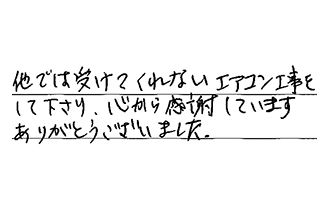 他では受けてくれないエアコン工事を
して下さり、心から感謝しています
ありがとうございました。